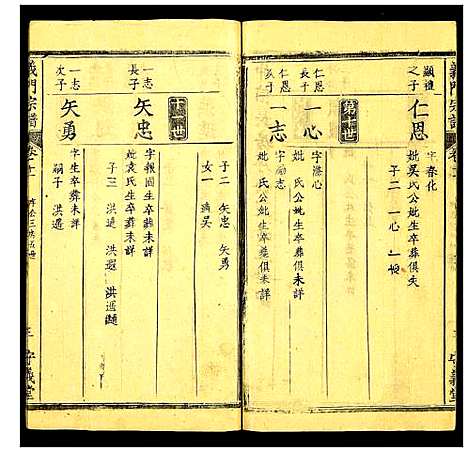 義門宗譜
顯禮之子
仁恩
字春化
妣吳氏公妣生卒葬俱失
子二 一心 一
仁恩長子
一心
字
妣 氏公妣生卒葬俱未詳
仁恩次子
一志
字勵志
妣 氏公妣生卒葬俱未詳
子二 矢忠 矢勇
女一 適吳
一志長子
矢忠
字報國生卒葬未詳
妣袁氏生卒葬未詳
子三 洪 洪選 洪
一志次子
矢勇
字生卒葬未詳
嗣子 洪選
義門宗譜
卷十一
三
守義堂